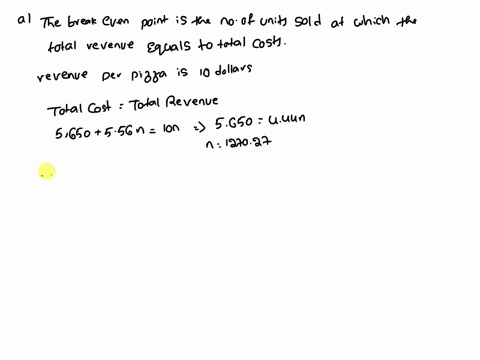 a) The break even point is the no. of units sold at which the
total revenue equals to total costs.
revenue per pizza is 10 dollars
Total Cost = Total Revenue
5,650 + 5.56n = 10n => 5.650 = 4.44n
n = 1270.27